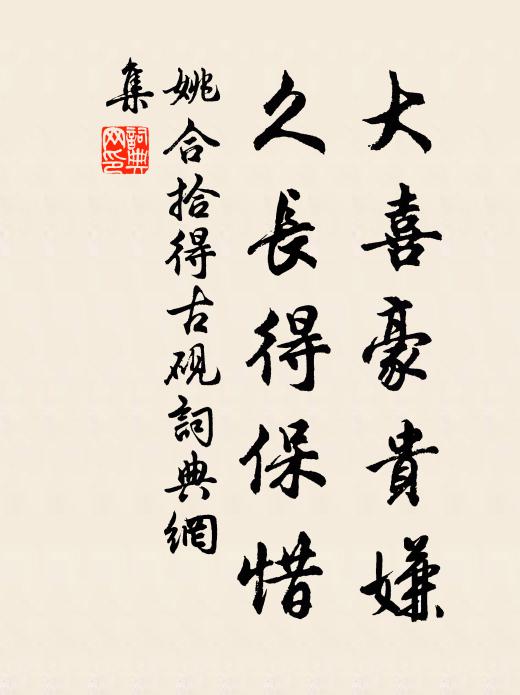 大喜豪貴嫌
久長得保惜
姚合拾得古硯詞典網
集
詞典
网印